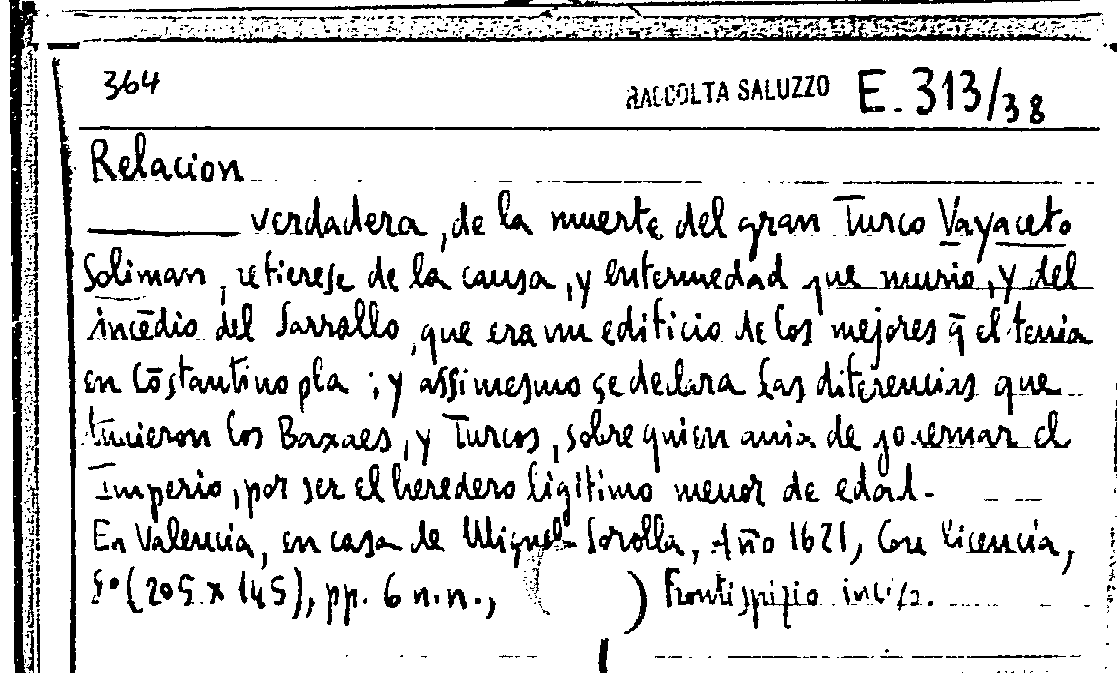 364 RACCOLTA SALUZZO E. 313/38
Relacion
verdadera, de la muerte del gran Turco Vayaceto
Soliman, refierese de la causa, y enfermedad que murio, y del
incēdio del Sarrallo, que era vn edificio de los mejores q̄ el tenia
en Cōstantinopla; y assimesmo se declara las diferencias que
tuuieron los Baxaes, y Turcos, sobre quien auia de gouernar el
Imperio, por ser el heredero ligitimo menor de edad.
En Valencia, en casa de Miguel Sorolla, Año 1621, Con licencia,
8° (205 x 145), pp. 6 n.n., ( ) Frontispizio inciso.